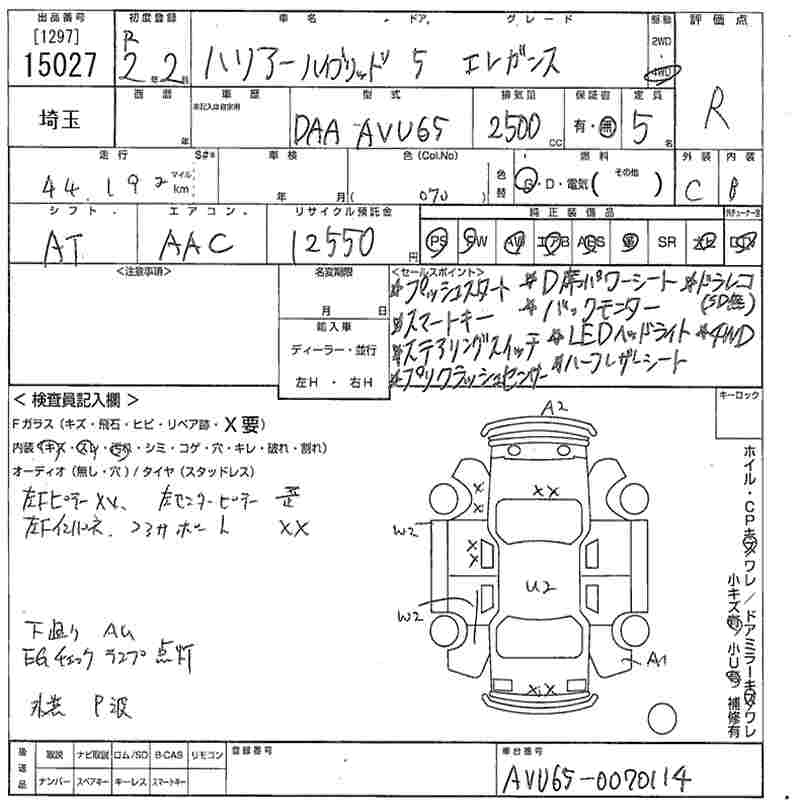 出品番号 初度登録 車名 ドア、 グレード 駆動 評価点
[1297] R 2WD
15027 2年2月 ハリアーハイブリッド 5 エレガンス ・ 4WD
R
西暦 車歴 型式 排気量 保証書 定員
埼玉 年 未記入は自家用 DAA-AVU65 2500cc 有・無 5名
走行 S#※ 車検 色(Col.No) 燃料 外装 内装
44,192 マイル km 年 月 (070) 色替 G・D・電気( その他 ) C B
シフト. エアコン. リサイクル預託金 純正装備品
AT AAC 12550円 PS PW AW エアB ABS 革 SR ナビ DTV
<注意事項> 名変期限 <セールスポイント>
月 日
輸入車
ディーラー・並行
左H ・ 右H
*プッシュスタート *D席パワーシート *ドラレコ
(SD無)
*スマートキー *バックモニター
*ステアリングスイッチ *LEDヘッドライト *4WD
*プリクラッシュセンサー *ハーフレザーシート
キーロック
< 検査員記入欄 >
Fガラス(キズ・飛石・ヒビ・リペア跡・X要)
内装(キズ・スレ・汚れ・シミ・コゲ・穴・キレ・破れ・割れ)
オーディオ(無し・穴)/タイヤ(スタッドレス)
左Fピラー XX、 左センターピラー 歪
左Fインパネ、コアサポート XX
下廻り
EGチェックランプ点灯
A2
XX
X
X
W2
X
X
U2
W2
A1
XX
ホイル・CPキズ/ワレ / ドアミラーキズ/ワレ
小キズ有/小U有/補修有
後送品 取説 ナビ取説 ロム/SD B-CAS リモコン 登録番号 車台番号
ナンバー スペアキー キーレス スマートキー AVU65-0070114